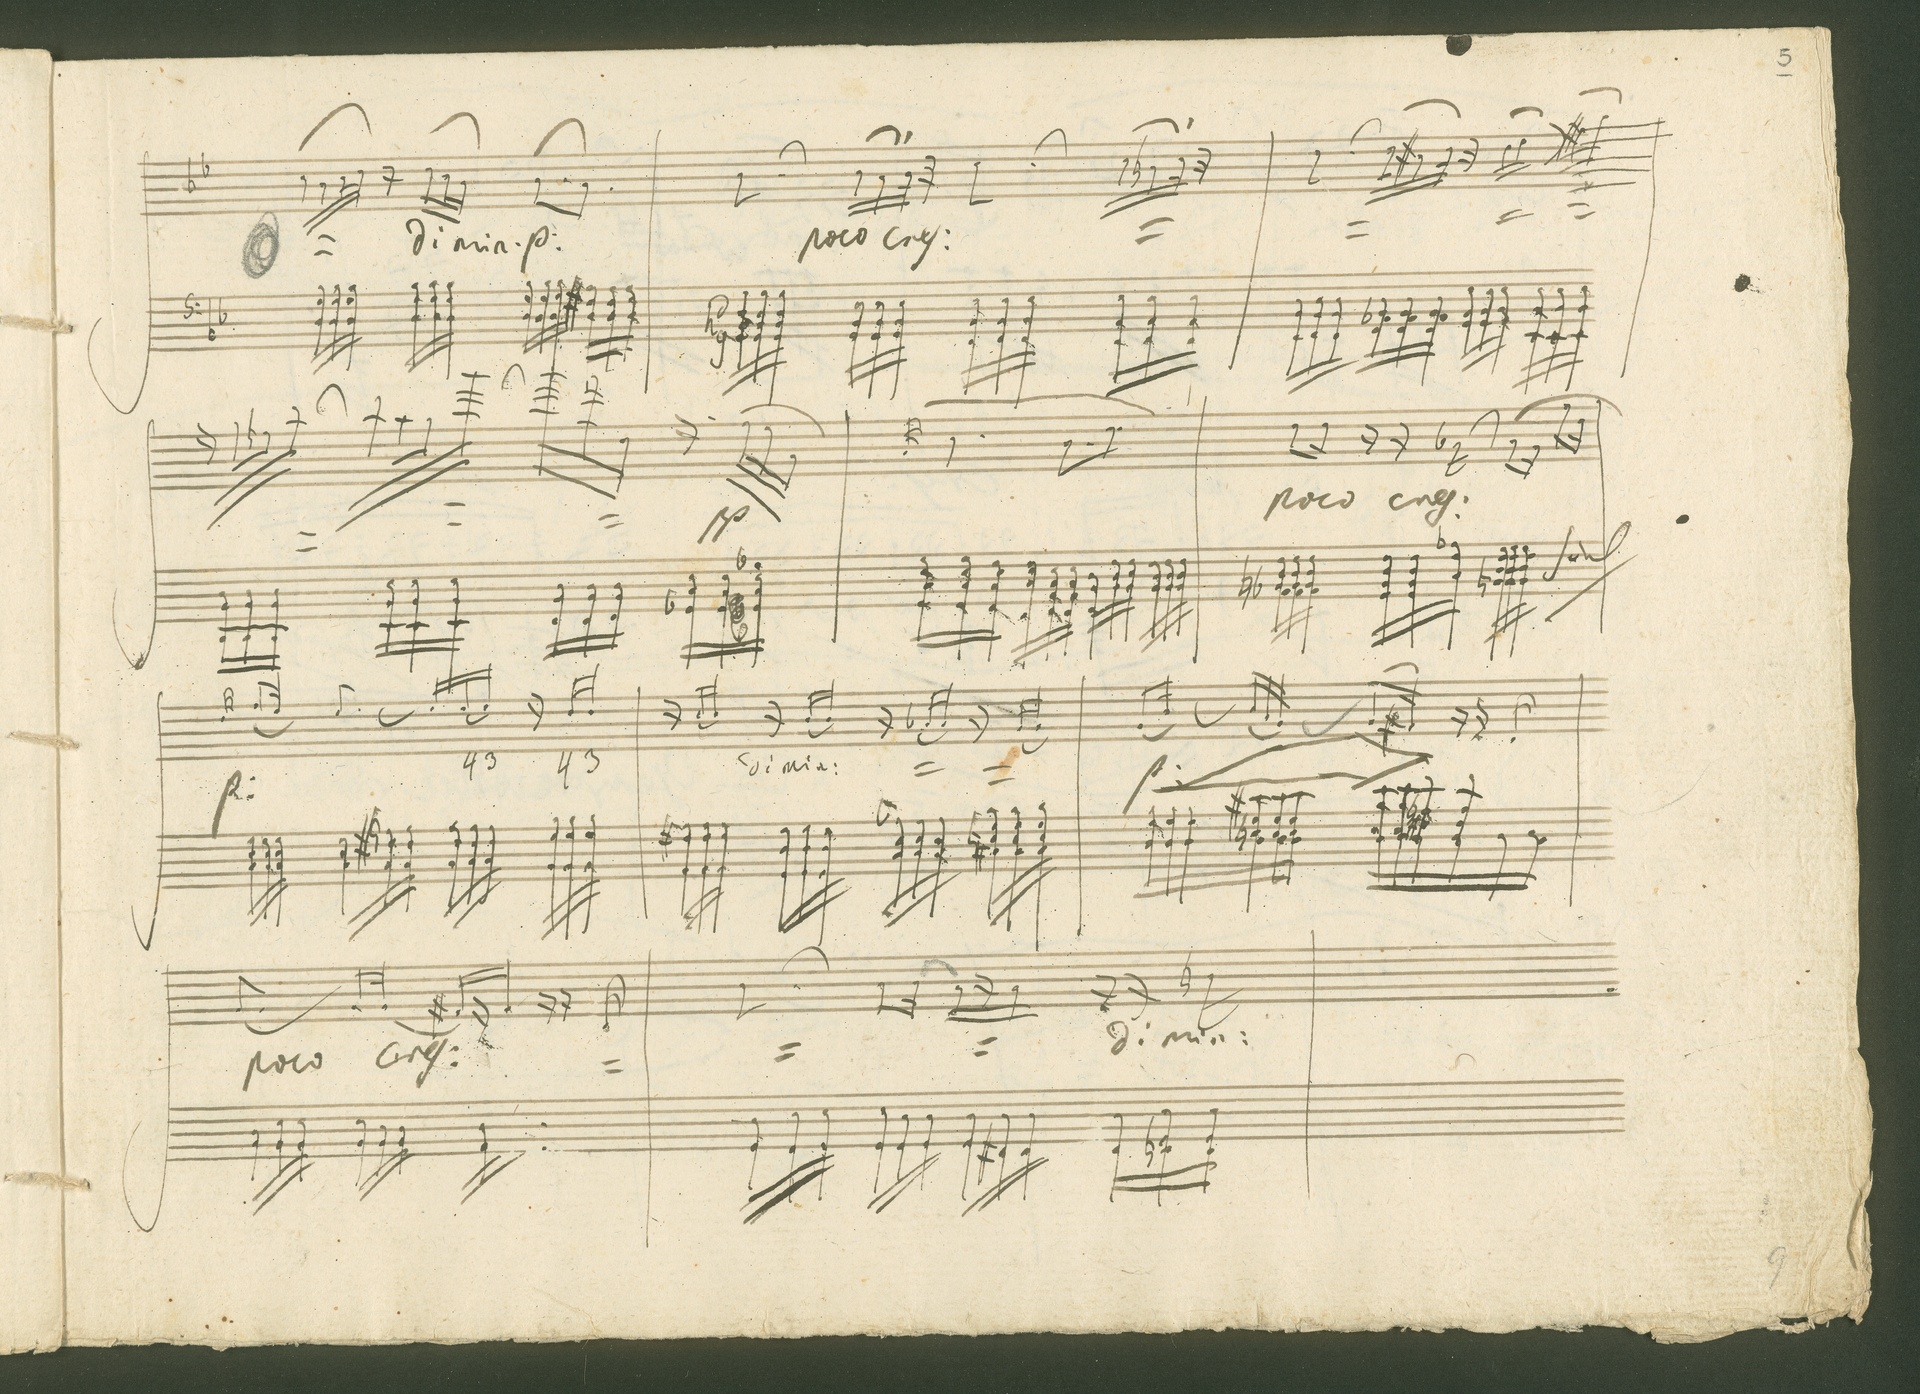 5
dimin. p:
poco cresc:
pp
poco cresc:
43 43
p: dimin: p:
poco cresc: dimin:
9